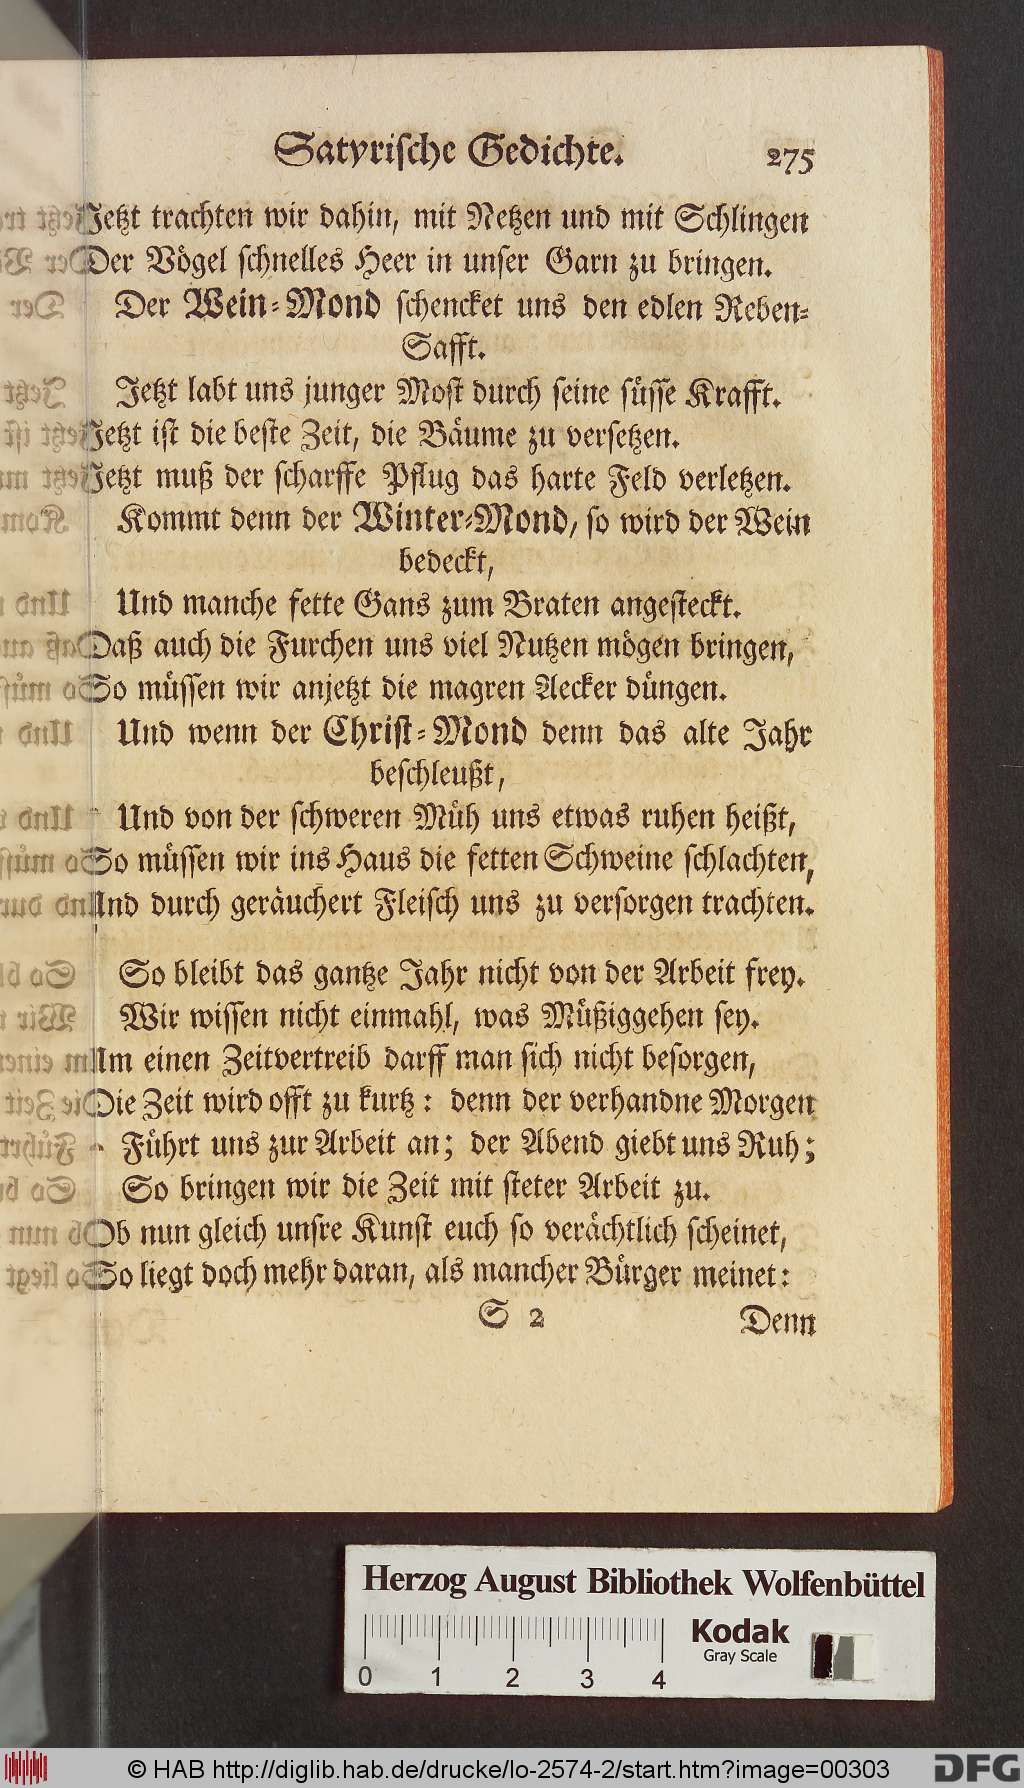 Satyrische Gedichte. 275
Jetzt trachten wir dahin, mit Netzen und mit Schlingen
Der Vögel schnelles Heer in unser Garn zu bringen.
Der Wein-Mond schencket uns den edlen Reben-
Safft.
Jetzt labt uns junger Most durch seine süsse Krafft.
Jetzt ist die beste Zeit, die Bäume zu versetzen.
Jetzt muß der scharffe Pflug das harte Feld verletzen.
Kommt denn der Winter-Mond, so wird der Wein
bedeckt,
Und manche fette Gans zum Braten angesteckt.
Daß auch die Furchen uns viel Nutzen mögen bringen,
So müssen wir anjetzt die magren Aecker düngen.
Und wenn der Christ-Mond denn das alte Jahr
beschleußt,
Und von der schweren Müh uns etwas ruhen heißt,
So müssen wir ins Haus die fetten Schweine schlachten,
Und durch geräuchert Fleisch uns zu versorgen trachten.
So bleibt das gantze Jahr nicht von der Arbeit frey.
Wir wissen nicht einmahl, was Müßiggehen sey.
Um einen Zeitvertreib darff man sich nicht besorgen,
Die Zeit wird offt zu kurtz: denn der verhandne Morgen
Führt uns zur Arbeit an; der Abend giebt uns Ruh;
So bringen wir die Zeit mit steter Arbeit zu.
Ob nun gleich unsre Kunst euch so verächtlich scheinet,
So liegt doch mehr daran, als mancher Bürger meinet:
S 2 Denn
Herzog August Bibliothek Wolfenbüttel
Kodak
Gray Scale
0 1 2 3 4
© HAB http://diglib.hab.de/drucke/lo-2574-2/start.htm?image=00303
DFG